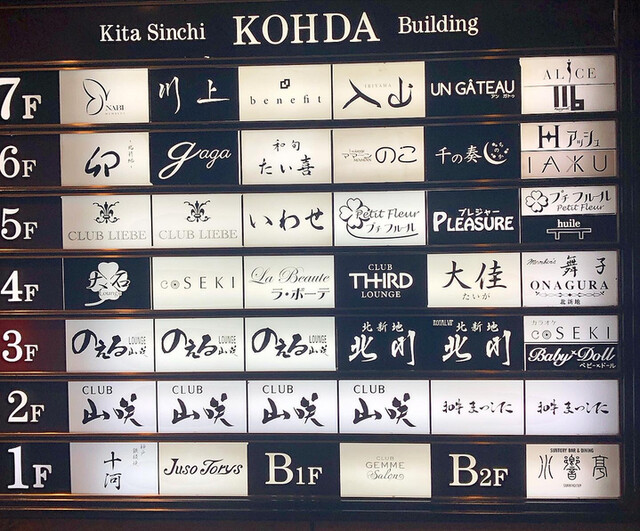 Kita Sinchi KOHDA Building
7F
NABI
川上
benefit
IRIYAMA
入山
UN GÂTEAU
アン ガトゥ
ALICE
6F
卯
gaga
和旬
たい喜
ママ~ン のこ
千の奏
H アッシュ
5F
CLUB LIEBE
CLUB LIEBE
いわせ
Petit Fleur
プチ フルール
プレジャー
PLEASURE
プチ フルール
Petit Fleur
huile
4F
大石
Lounge
coSEKI
La Beaute
ラ・ボーテ
CLUB
THIRD
LOUNGE
大佳
たいが
舞子
ONAGURA
北新地
3F
のえる LOUNGE
のえる LOUNGE
のえる LOUNGE
北新地
北新地
カラオケ
coSEKI
Baby Doll
ベビー×ドール
2F
CLUB
山咲
CLUB
山咲
CLUB
山咲
CLUB
山咲
まつした
まつした
1F
十河
Juso Torys
B1F
CLUB
GEMME
Salon
B2F
SUNTORY BAR & DINING
水響亭